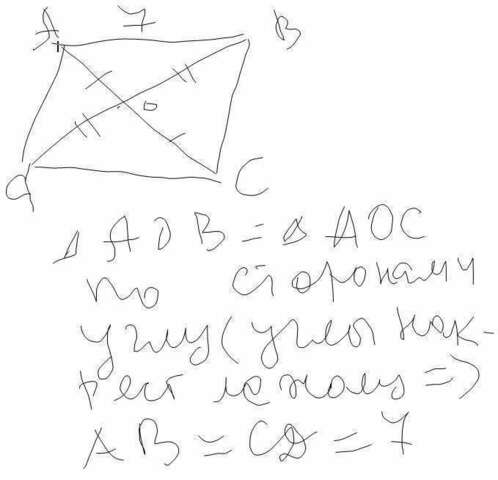 A 7 B
O
C
△ AOB = △ AOC
по сторонам и
углу (углы нак-
рест лежащ =>
AB = CД = 7